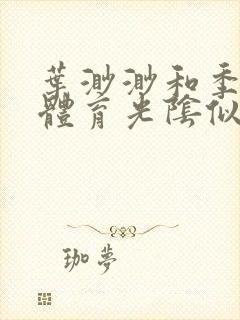 葉渺渺和季
體育光陰似
珈夢